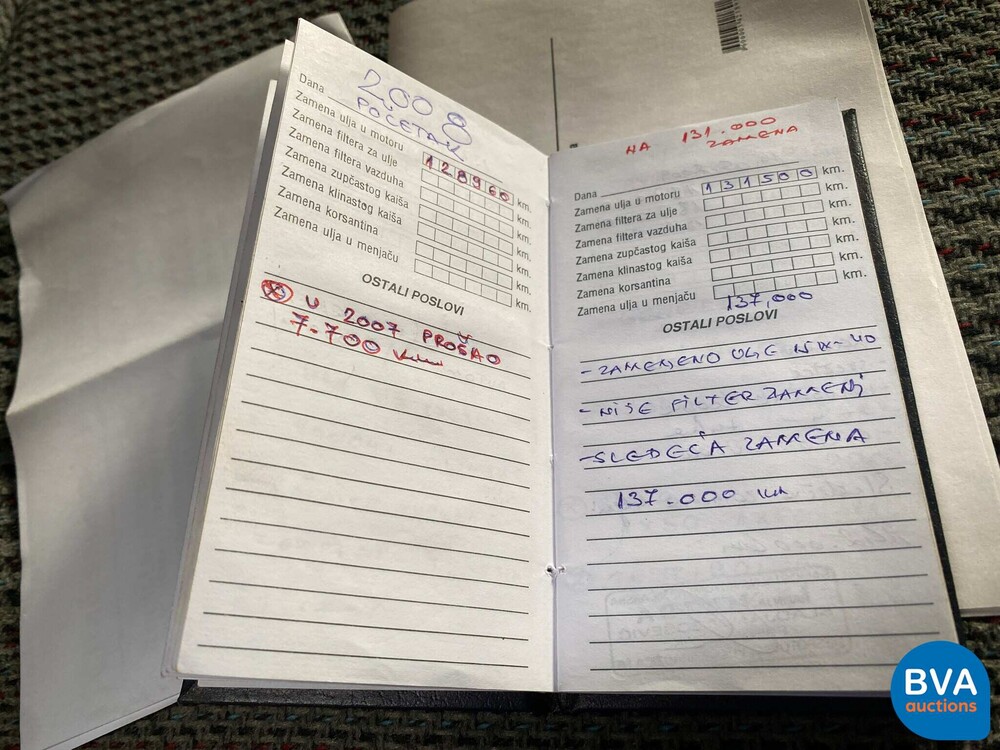 2008
POČETAK
Dana
Zamena ulja u motoru 128960 km.
Zamena filtera za ulje km.
Zamena filtera vazduha km.
Zamena zupčastog kaiša km.
Zamena klinastog kaiša km.
Zamena korsantina km.
Zamena ulja u menjaču km.
OSTALI POSLOVI
U 2007 PROŠAO
7.700 km
NA 131.000
ZAMENA
Dana
Zamena ulja u motoru 131500 km.
Zamena filtera za ulje km.
Zamena filtera vazduha km.
Zamena zupčastog kaiša km.
Zamena klinastog kaiša km.
Zamena korsantina km.
Zamena ulja u menjaču km.
137,000
OSTALI POSLOVI
- ZAMENJENO ULJE
- NIJE FILTER ZAMENJ
- SLEDEĆA ZAMENA
137.000 km
BVA
auctions